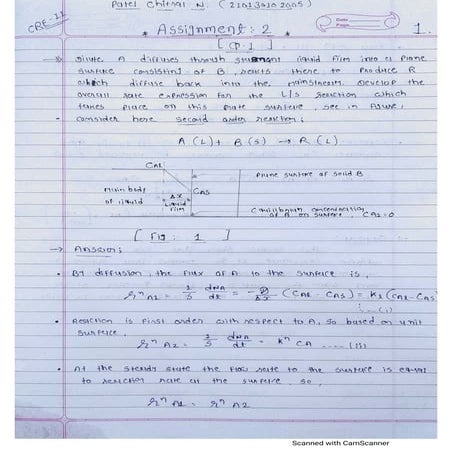 Patel Chitral N. (210130102005)
CRE-II
* Assignment: 2 *
Date
Page
1.
[Q.1]
Dilute A diffuses through stagnant liquid film into a plane
surface consisting of B, reacts there to produce R
which diffuse back into the mainstream. Develop the
overall rate expression for the L/S reaction which
takes place on this plane surface, see in figure,
consider here second order reaction;
A (L) + B (S) → R (L)
CAL
Plane surface of solid B
CAS
Main body
of liquid
Δx
Liquid
film
Equilibrium concentration
of A on surface, CA2 = 0
[Fig: 1]
→ Answer:
• By diffusion, the flux of A to the surface is,
r" A1 = 1/S dNA/dt = -D/Δx (CAL - CAS) = Kl (CAL - CAS)
....(i)
• Reaction is first order with respect to A, so based on unit
surface,
r" A2 = 1/S dNA/dt = k" CA ....(ii)
• At the steady state the flow rate to the surface is equal
to reaction rate at the surface. So,
r" A1 = r" A2
Scanned with CamScanner